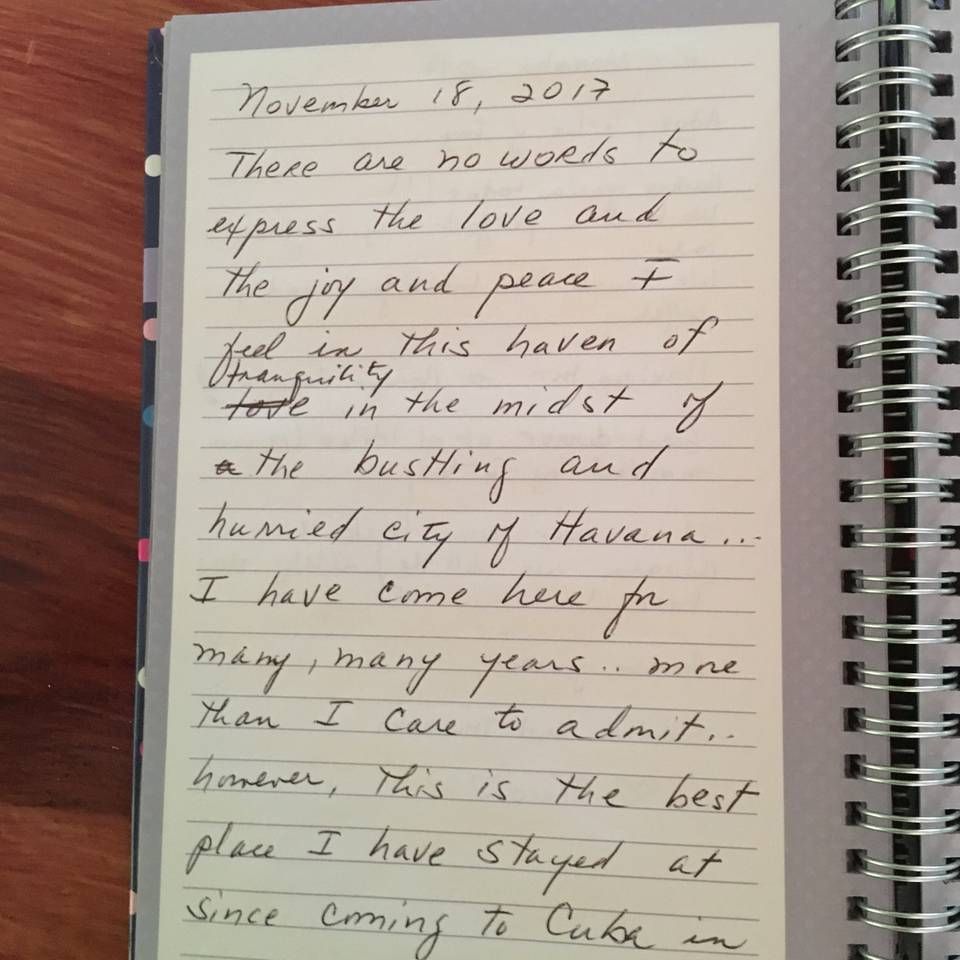 November 18, 2017
There are no words to
express the love and
the joy and peace I
feel in this haven of
tranquility
love in the midst of
a the bustling and
hurried city of Havana...
I have come here for
many, many years.. more
than I care to admit..
however, this is the best
place I have stayed at
since coming to Cuba in